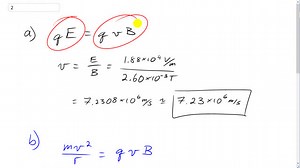 2
a) qE = qvB
v = E/B = 1.88×10⁴ V/m / 2.60×10⁻³ T
= 7.2308×10⁶ m/s ≅ 7.23×10⁶ m/s
b) mv²/r = qvB